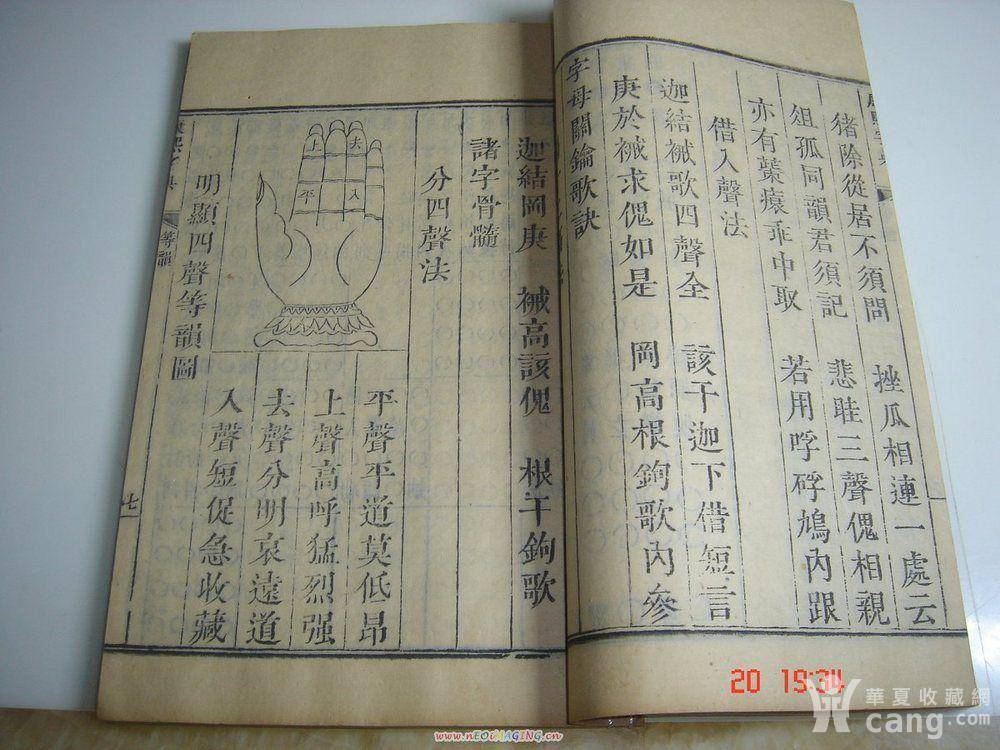 康熙字典
猪除從居不須問 挫瓜相連一處云
俎孤同韻君須記 悲眭三聲傀相親
亦有 乖中取 若用呼 鳩內跟
借入聲法
迦結祴歌四聲全 該干迦下借短言
庚於祴求傀如是 岡高根鉤歌內參
字母關鑰歌訣
迦結岡庚 祴高該傀 根干鉤歌
諸字骨髓
分四聲法
上 去
平 入
平聲平道莫低昂
上聲高呼猛烈强
去聲分明哀遠道
入聲短促急收藏
明顯四聲等韻圖
康熙字典 等韻 七
20 19:34
華夏收藏網
cang.com
www.nEOiMAGING.cn